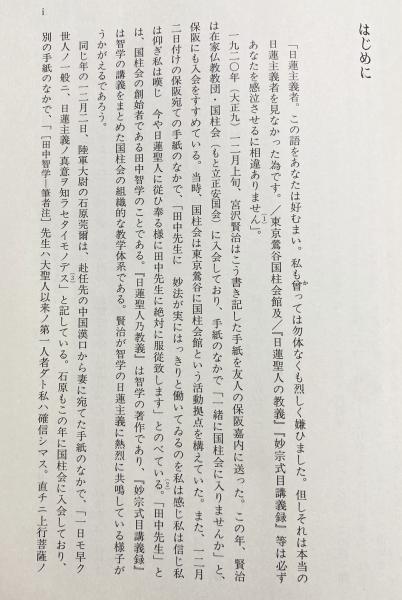 はじめに
「日蓮主義者。この語をあなたは好むまい。私も曾(かつ)ては勿体なくも烈しく嫌ひました。但しそれは本当の
日蓮主義者を見なかった為です。／東京鶯谷国柱会館及／『日蓮聖人の教義』『妙宗式目講義録』等は必ず
あなたを感泣させるに相違ありません(1)」。
一九二〇年（大正九）一二月上旬、宮沢賢治はこう書き記した手紙を友人の保阪嘉内に送った。この年、賢治
は在家仏教教団・国柱会（もと立正安国会）に入会しており、手紙のなかで「一緒に国柱会に入りませんか」と、
保阪にも入会をすすめている。当時、国柱会は東京鶯谷に国柱会館という活動拠点を構えていた。また、一二月
二日付けの保阪宛ての手紙のなかで、「田中先生に　妙法が実にはっきりと働いてゐるのを私は感じ私は信じ私
は仰ぎ私は嘆じ　今や日蓮聖人に従ひ奉る様に田中先生に絶対に服従致します」とのべている(2)。「田中先生」と
は、国柱会の創始者である田中智学のことである。『日蓮聖人乃教義』は智学の著作であり、『妙宗式目講義録』
は智学の講義をまとめた国柱会の組織的な教学体系である。賢治が智学の日蓮主義に熱烈に共鳴している様子が
うかがえるであろう。
同じ年の一二月二日、陸軍大尉の石原莞爾は、赴任先の中国漢口から妻に宛てた手紙のなかで、「一日モ早ク
世人ノ一般ニ、日蓮主義ノ真意ヲ知ラセタイモノデス(3)」と記している。石原もこの年に国柱会に入会しており、
別の手紙のなかで、「〔田中智学―筆者注〕先生ハ大聖人以来ノ第一人者ダト私ハ確信シマス。直チニ上行菩薩ノ
i